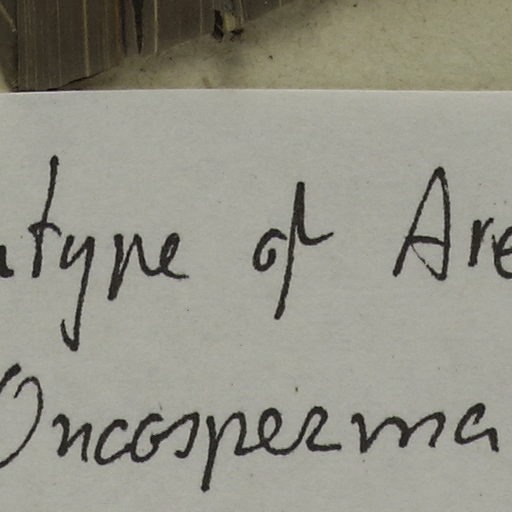 type of Are
Oncosperma